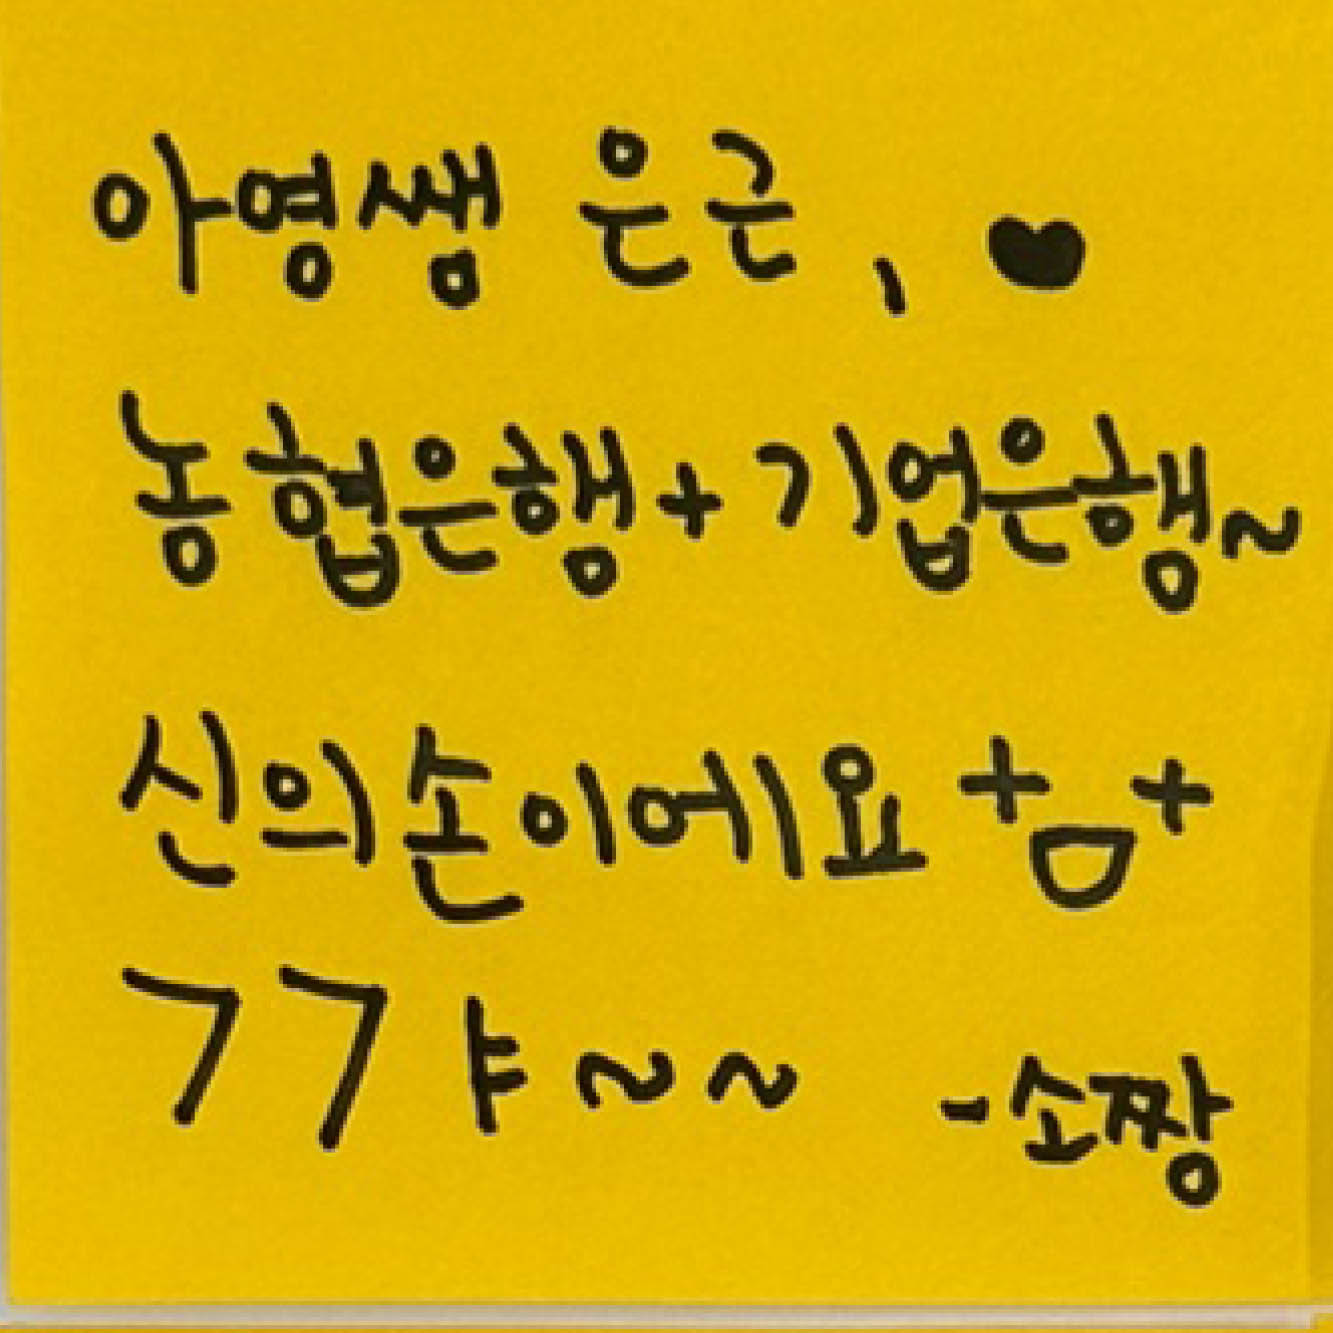 아영쌤 은근, ♥
농협은행+기업은행~
신의손이에요 +ㅁ+
ㄱㄱㅑ~~ -소짱